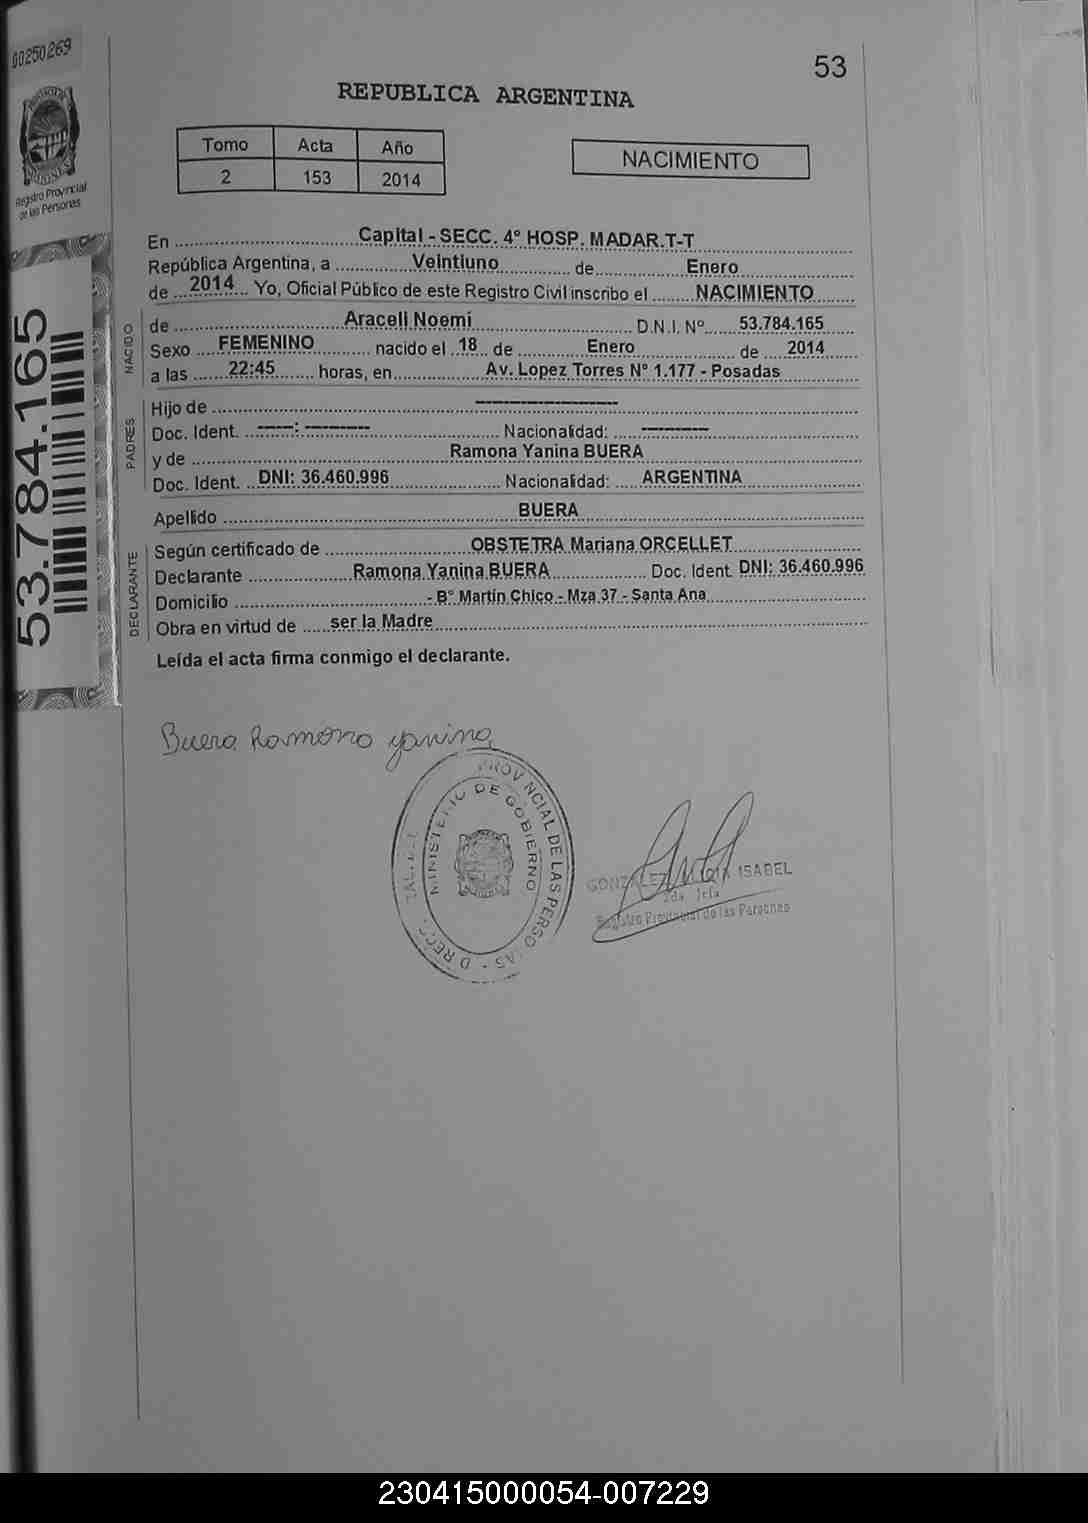 00250269
53
REPUBLICA ARGENTINA
Registro Provincial
de las Personas
Tomo Acta Año
2 153 2014
NACIMIENTO
En Capital - SECC. 4° HOSP. MADAR.T-T
República Argentina, a Veintiuno de Enero
de 2014 Yo, Oficial Público de este Registro Civil inscribo el NACIMIENTO
NACIDO
de Araceli Noemi D.N.I. Nº 53.784.165
Sexo FEMENINO nacido el 18 de Enero de 2014
a las 22:45 horas, en Av. Lopez Torres N° 1.177 - Posadas
PADRES
Hijo de --------------------
Doc. Ident. -----: --------- Nacionalidad: ---------
y de Ramona Yanina BUERA
Doc. Ident. DNI: 36.460.996 Nacionalidad: ARGENTINA
Apellido BUERA
DECLARANTE
Según certificado de OBSTETRA Mariana ORCELLET
Declarante Ramona Yanina BUERA Doc. Ident. DNI: 36.460.996
Domicilio - B° Martin Chico - Mza 37 - Santa Ana
Obra en virtud de ser la Madre
Leída el acta firma conmigo el declarante.
53.784.165
Buera Ramona yanina
PROVINCIAL DE LAS PERSONAS
MINISTERIO DE GOBIERNO
GONZALEZ ISABEL
2da Jefa
Registro Provincial de las Personas
230415000054-007229